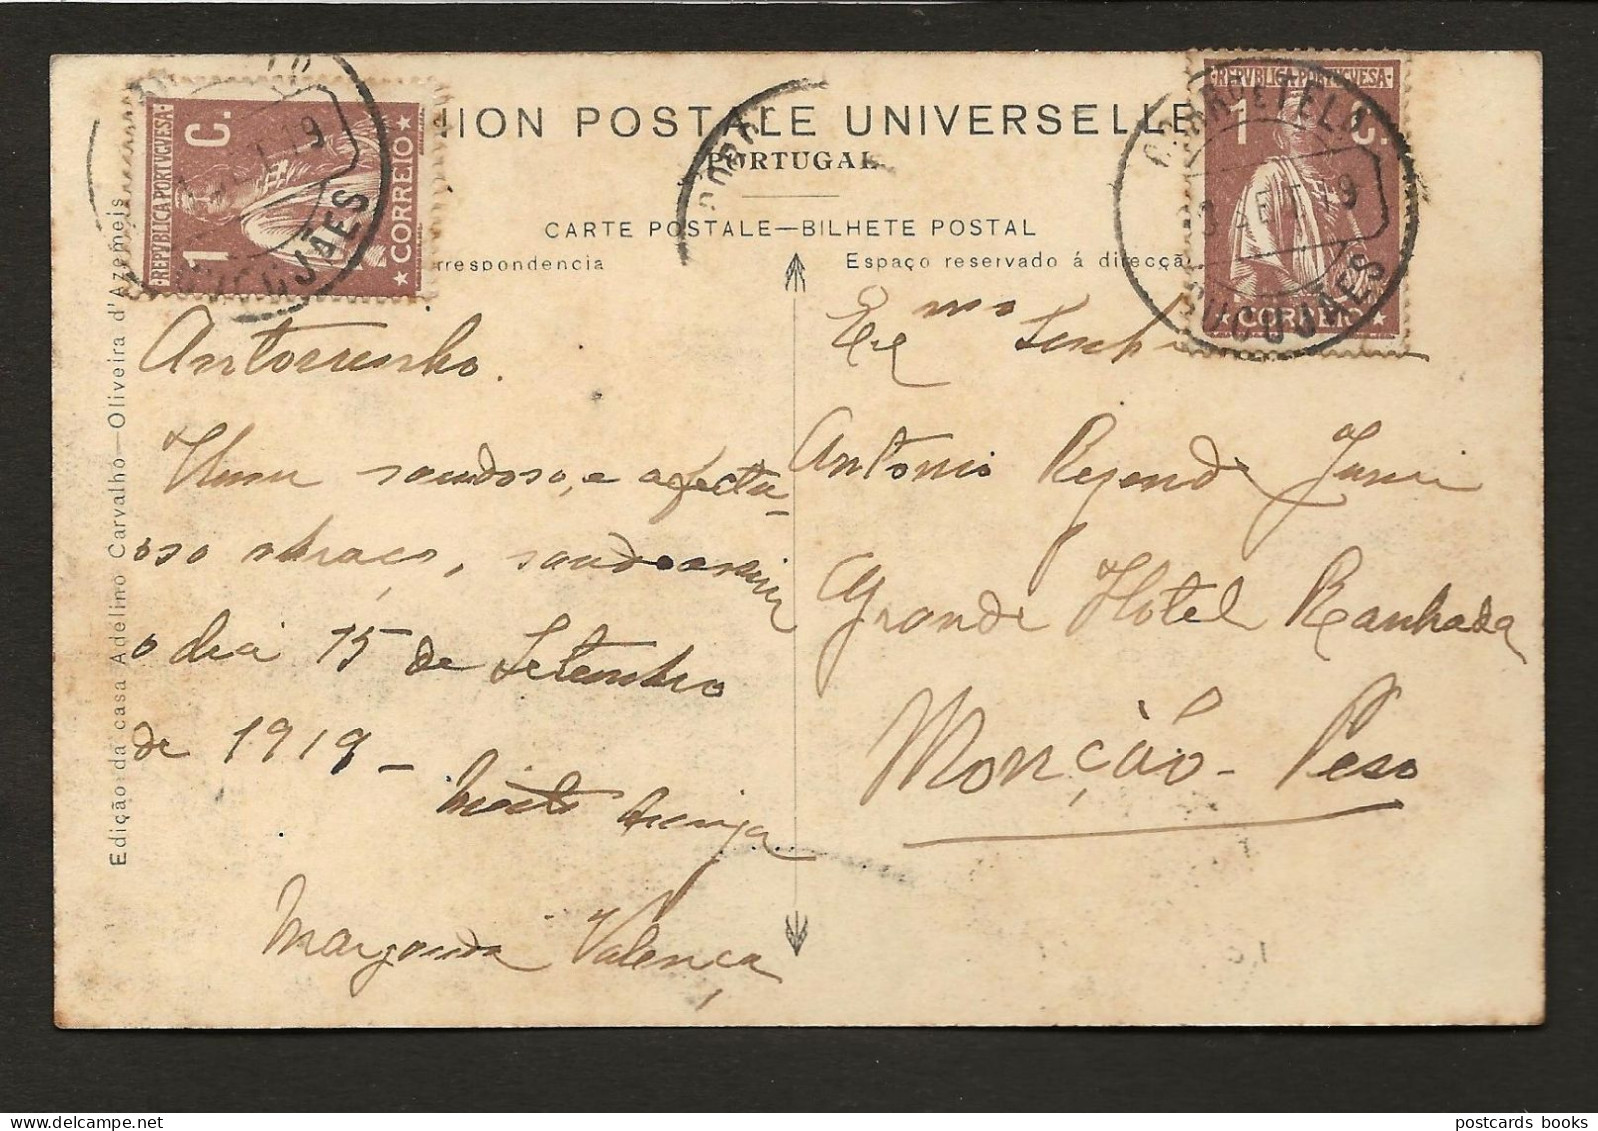 ION POSTALE UNIVERSELLE
PORTUGAL
CARTE POSTALE—BILHETE POSTAL
rrespondencia
Espaço reservado á direcçã
REPVBLICA PORTVGVESA
1 C.
CORREIO
REPVBLICA PORTVGVESA
1 C.
CORREIO
CUCUJAES
CARRETELO
CUCUJAES
Edição da casa Adelino Carvalho—Oliveira d'Azemeis
Antoninho.
Hum saudoso, e afectu-
oso abraço,
o dia 15 de Setembro
de 1919 –
Muito amiga
Margarida Valença
Exmo Senh
Antonio Rezende Juni
Grande Hotel Ranhada
Monção - Peso
postcards books